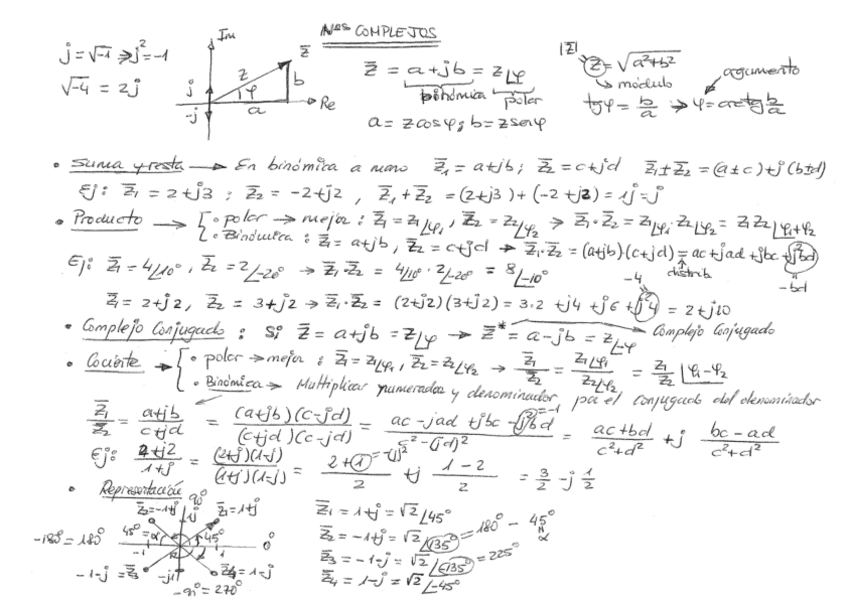 Nos COMPLEJOS
j = √-1 ⇒ j² = -1
√-4 = 2j
Im
Re
z̄
z
φ
a
b
j
-j
z̄ = a + jb = z∠φ
binómica
polar
a = z cosφ; b = z senφ
|z̄|
z = √a²+b²
módulo
argumento
tgφ = b/a → φ = arctg b/a
• Suma y resta → En binómica a mano z̄₁ = a+jb; z̄₂ = c+jd z̄₁±z̄₂ = (a±c)+j(b±d)
Ej: z̄₁ = 2+j3; z̄₂ = -2+j2, z̄₁+z̄₂ = (2+j3)+(-2+j2) = 1j = j
• Producto → { • polar → mejor: z̄₁ = z₁∠φ₁, z̄₂ = z₂∠φ₂ ⇒ z̄₁·z̄₂ = z₁∠φ₁·z₂∠φ₂ = z₁z₂∠φ₁+φ₂
• Binómica: z̄₁ = a+jb, z̄₂ = c+jd → z̄₁·z̄₂ = (a+jb)(c+jd) = ac+jad+jbc+j²bd
distrib
-bd
Ej: z̄₁ = 4∠10°, z̄₂ = 2∠-20° → z̄₁·z̄₂ = 4∠10°·2∠-20° = 8∠-10°
-4
z̄₁ = 2+j2, z̄₂ = 3+j2 → z̄₁·z̄₂ = (2+j2)(3+j2) = 3·2+j4+j6+j²4 = 2+j10
• Complejo Conjugado: Si z̄ = a+jb = z∠φ → z̄* = a-jb = z∠-φ
Complejo Conjugado
• Cociente → { • polar → mejor: z̄₁ = z₁∠φ₁, z̄₂ = z₂∠φ₂ → z̄₁/z̄₂ = z₁∠φ₁/z₂∠φ₂ = z₁/z₂ ∠φ₁-φ₂
• Binómica → Multiplicar numerador y denominador por el conjugado del denominador
z̄₁/z̄₂ = a+jb/c+jd = (a+jb)(c-jd)/(c+jd)(c-jd) = ac-jad+jbc-j²bd/c²-(jd)² = ac+bd/c²+d² + j bc-ad/c²+d²
=-1
Ej: 2+j2/1+j = (2+j)(1-j)/(1+j)(1-j) = 2+1/2 + j 1-2/2 = 3/2 - j 1/2
=-(j)²
• Representación
90°
z̄₂=-1+j
z̄₁=1+j
j
-180°=180°
45°=α
45°
0°
-1
1
-1-j=z̄₃
-j
z̄₄=1-j
-90°=270°
z̄₁ = 1+j = √2∠45°
z̄₂ = -1+j = √2∠135° = 180° - 45°
α
z̄₃ = -1-j = √2∠-135° = 225°
z̄₄ = 1-j = √2∠-45°